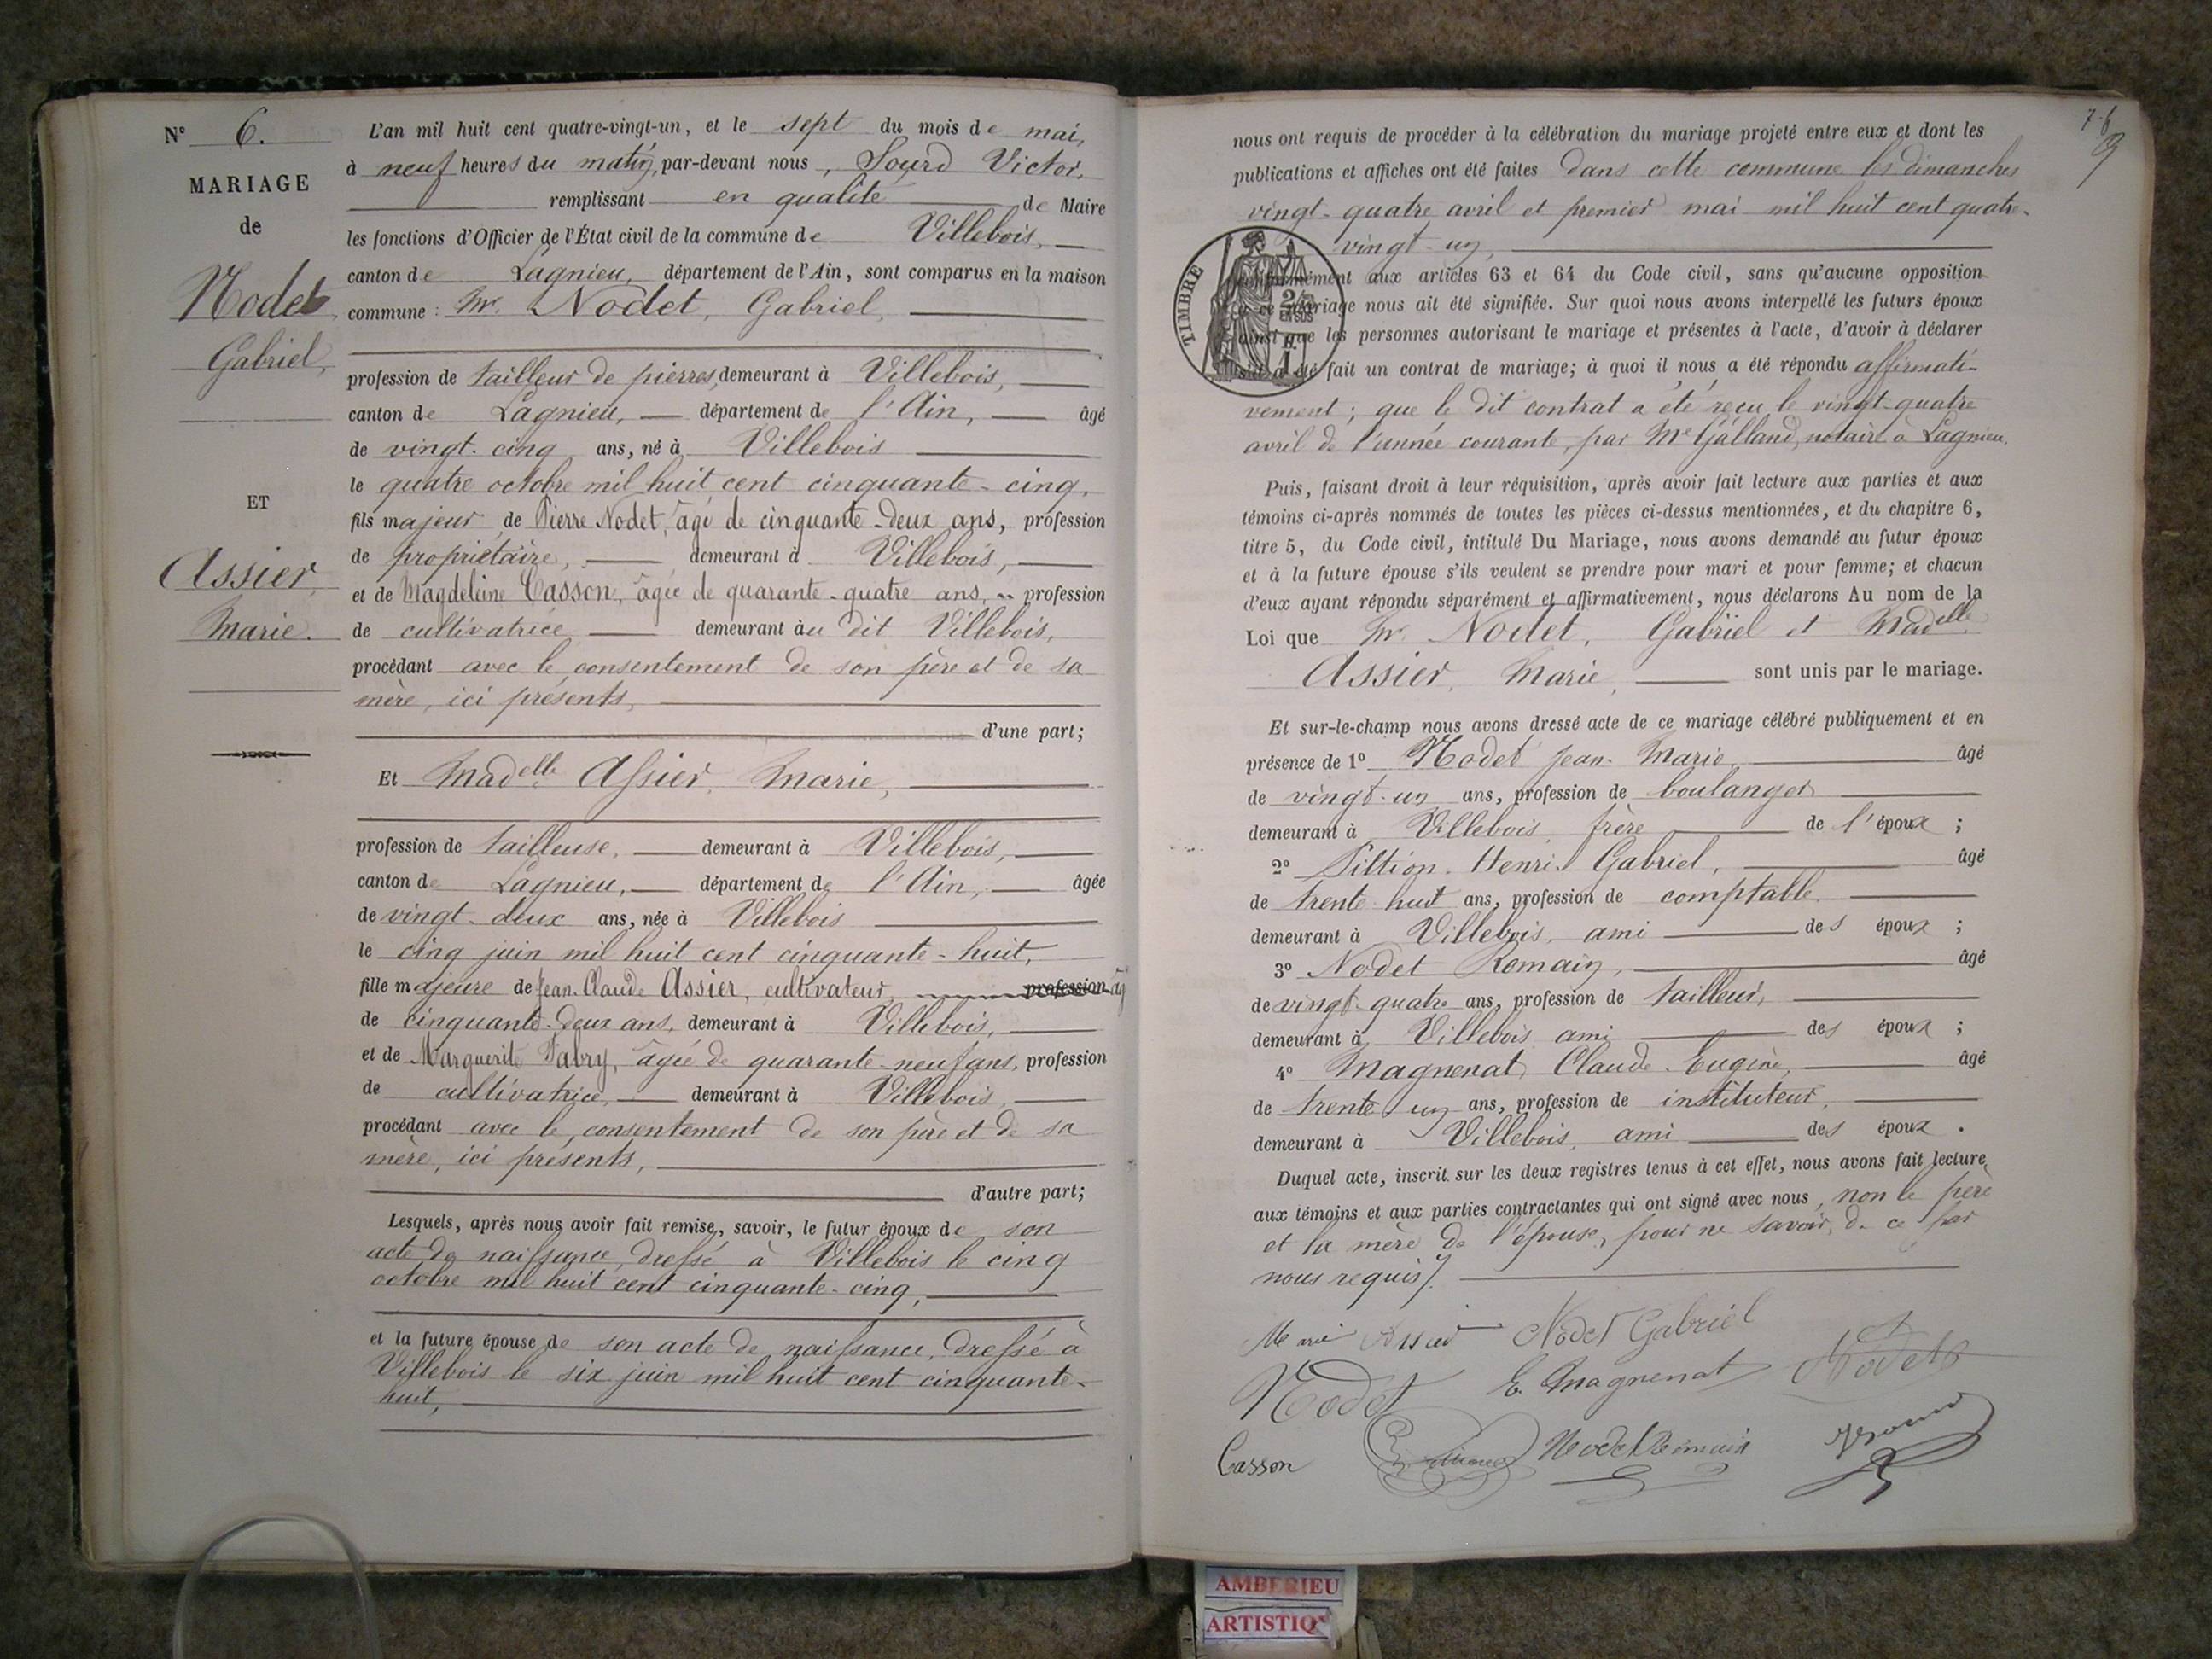 N° 6.
MARIAGE
de
Nodet
Gabriel,
ET
Assier,
Marie.
L'an mil huit cent quatre-vingt-un, et le sept du mois de mai,
à neuf heures du matin, par-devant nous, Sourd Victor,
remplissant en qualité de Maire
les fonctions d'Officier de l'État civil de la commune de Villebois,
canton de Lagnieu, département de l'Ain, sont comparus en la maison
commune : Mr. Nodet, Gabriel,
profession de tailleur de pierres, demeurant à Villebois,
canton de Lagnieu, département de l'Ain, âgé
de vingt-cinq ans, né à Villebois
le quatre octobre mil huit cent cinquante-cinq,
fils majeur de Pierre Nodet, âgé de cinquante-deux ans, profession
de propriétaire, demeurant à Villebois,
et de Magdeleine Casson, âgée de quarante-quatre ans, profession
de cultivatrice demeurant au dit Villebois,
procédant avec le consentement de son père et de sa
mère, ici présents,
d'une part;
Et Madelle Assier, Marie,
profession de tailleuse, demeurant à Villebois,
canton de Lagnieu, département de l'Ain, âgée
de vingt-deux ans, née à Villebois
le cinq juin mil huit cent cinquante-huit,
fille majeure de Jean-Claude Assier, cultivateur, profession âgé
de cinquante-deux ans, demeurant à Villebois,
et de Marguerite Fabry, âgée de quarante-neuf ans, profession
de cultivatrice, demeurant à Villebois,
procédant avec le consentement de son père et de sa
mère, ici présents,
d'autre part;
Lesquels, après nous avoir fait remise, savoir, le futur époux de son
acte de naissance, dressé à Villebois le cinq
octobre mil huit cent cinquante-cinq,
et la future épouse de son acte de naissance, dressé à
Villebois le six juin mil huit cent cinquante-
huit,
nous ont requis de procéder à la célébration du mariage projeté entre eux et dont les
publications et affiches ont été faites dans cette commune les dimanches
vingt-quatre avril et premier mai mil huit cent quatre-
vingt-un,
TIMBRE
conformément aux articles 63 et 64 du Code civil, sans qu'aucune opposition
à ce mariage nous ait été signifiée. Sur quoi nous avons interpellé les futurs époux
ainsi que les personnes autorisant le mariage et présentes à l'acte, d'avoir à déclarer
s'il a été fait un contrat de mariage; à quoi il nous a été répondu affirmati-
vement; que le dit contrat a été reçu le vingt-quatre
avril de l'année courante, par Me Galland, notaire à Lagnieu.
Puis, faisant droit à leur réquisition, après avoir fait lecture aux parties et aux
témoins ci-après nommés de toutes les pièces ci-dessus mentionnées, et du chapitre 6,
titre 5, du Code civil, intitulé Du Mariage, nous avons demandé au futur époux
et à la future épouse s'ils veulent se prendre pour mari et pour femme; et chacun
d'eux ayant répondu séparément et affirmativement, nous déclarons Au nom de la
Loi que Mr. Nodet, Gabriel et Madelle
Assier, Marie, sont unis par le mariage.
Et sur-le-champ nous avons dressé acte de ce mariage célébré publiquement et en
présence de 1° Nodet Jean-Marie, âgé
de vingt-un ans, profession de boulanger
demeurant à Villebois, frère de l'époux ;
2° Henri Gabriel, âgé
de trente-huit ans, profession de comptable
demeurant à Villebois, ami des époux ;
3° Nodet Romain, âgé
de vingt-quatre ans, profession de tailleur,
demeurant à Villebois ami des époux ;
4° Magnenat, Claude-Eugène, âgé
de trente-un ans, profession de instituteur,
demeurant à Villebois, ami des époux.
Duquel acte, inscrit sur les deux registres tenus à cet effet, nous avons fait lecture
aux témoins et aux parties contractantes qui ont signé avec nous, non le père
et la mère de l'épouse, pour ne savoir, de ce par
nous requis.
Marie Assier Nodet Gabriel
Nodet E. Magnenat Nodet
Casson Nodet Romain
AMBERIEU
ARTISTIQ